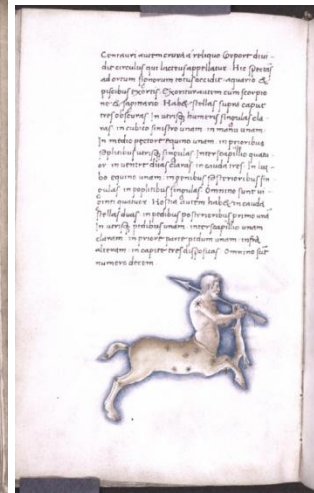 Centauri autem crura a reliquo corpore divi-
dit circulus qui lacteus appellatur. Hic spectās
ad ortum signorum totus occidit aquario &
piscibus exortis. Exoritur autem cum scorpio
ne & sagittario. Habet stellas supra caput
tres obscuras. In utrisq; humeris singulas cla
ras. in cubito sinistro unam. in manu unam.
In medio pectore equino unam. in prioribus
poplitibus utrisq; singulas. Interscapilio quatu
or. in ventre duas claras. in cauda tres. In lum
bo equino unam. in genibus posterioribus sin
gulas. in poplitibus singulas. Omnino sunt vi
ginti quatuor. Hostia autem habet in cauda
stellas duas. in pedibus posterioribus primo unā
In utrisq; pedibus unam. interscapilio unam
claram. in priore parte pedum unam. infra
alteram. in capite tres dispositas. Omnino sūt
numero decem.